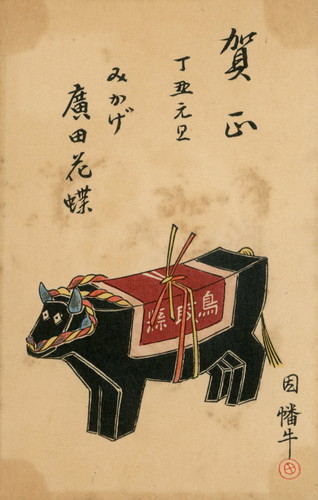 賀正
丁丑元旦
みかげ
廣田花蝶
鳥取縣
因幡牛